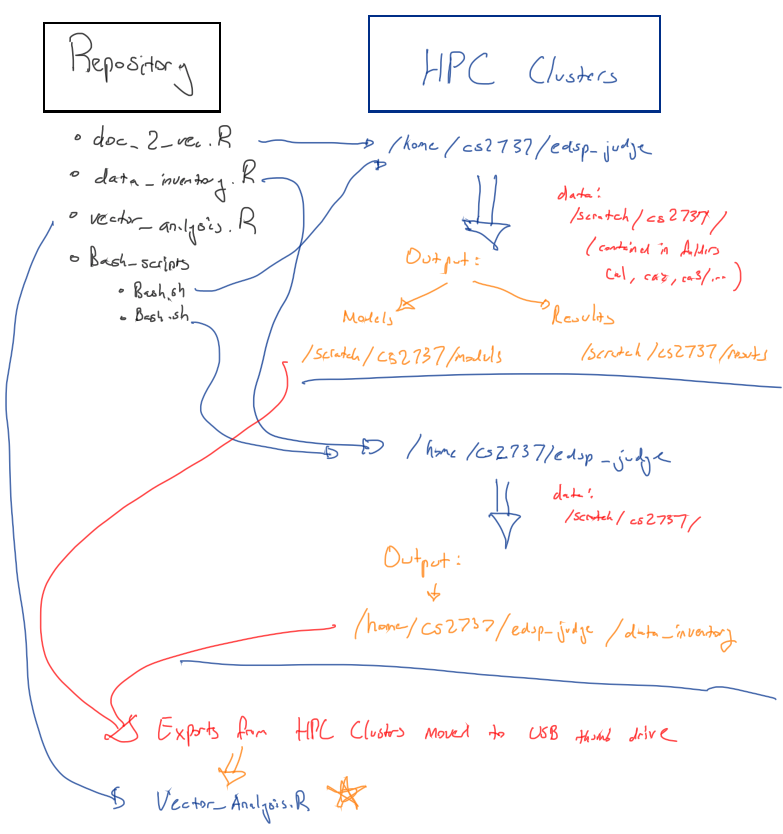 Repository
HPC Clusters
• doc_2_vec.R
/home/cs2737/edsp_judge
• data_inventory.R
• vector_analysis.R
• Bash_scripts
• Bash.sh
• Bash.sh
data:
/scratch/cs2737/
(contained in folders
ca1, ca2, ca3/...)
Output:
Models
Results
/scratch/cs2737/models
/scratch/cs2737/results
/home/cs2737/edsp_judge
data:
/scratch/cs2737/
Output:
/home/cs2737/edsp_judge/data_inventory
Exports from HPC Clusters moved to USB thumb drive
Vector_Analysis.R